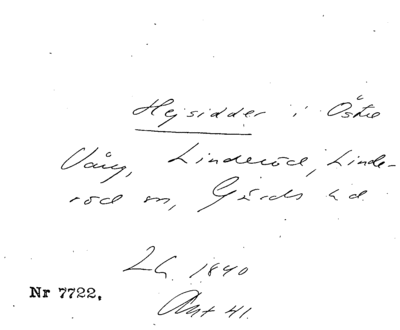 Hejsidder i Östre
Vång, Linderöd, Linde-
röd sn, Gärds hd.
Lh. 1840
Nr 7722,
Akt 41.